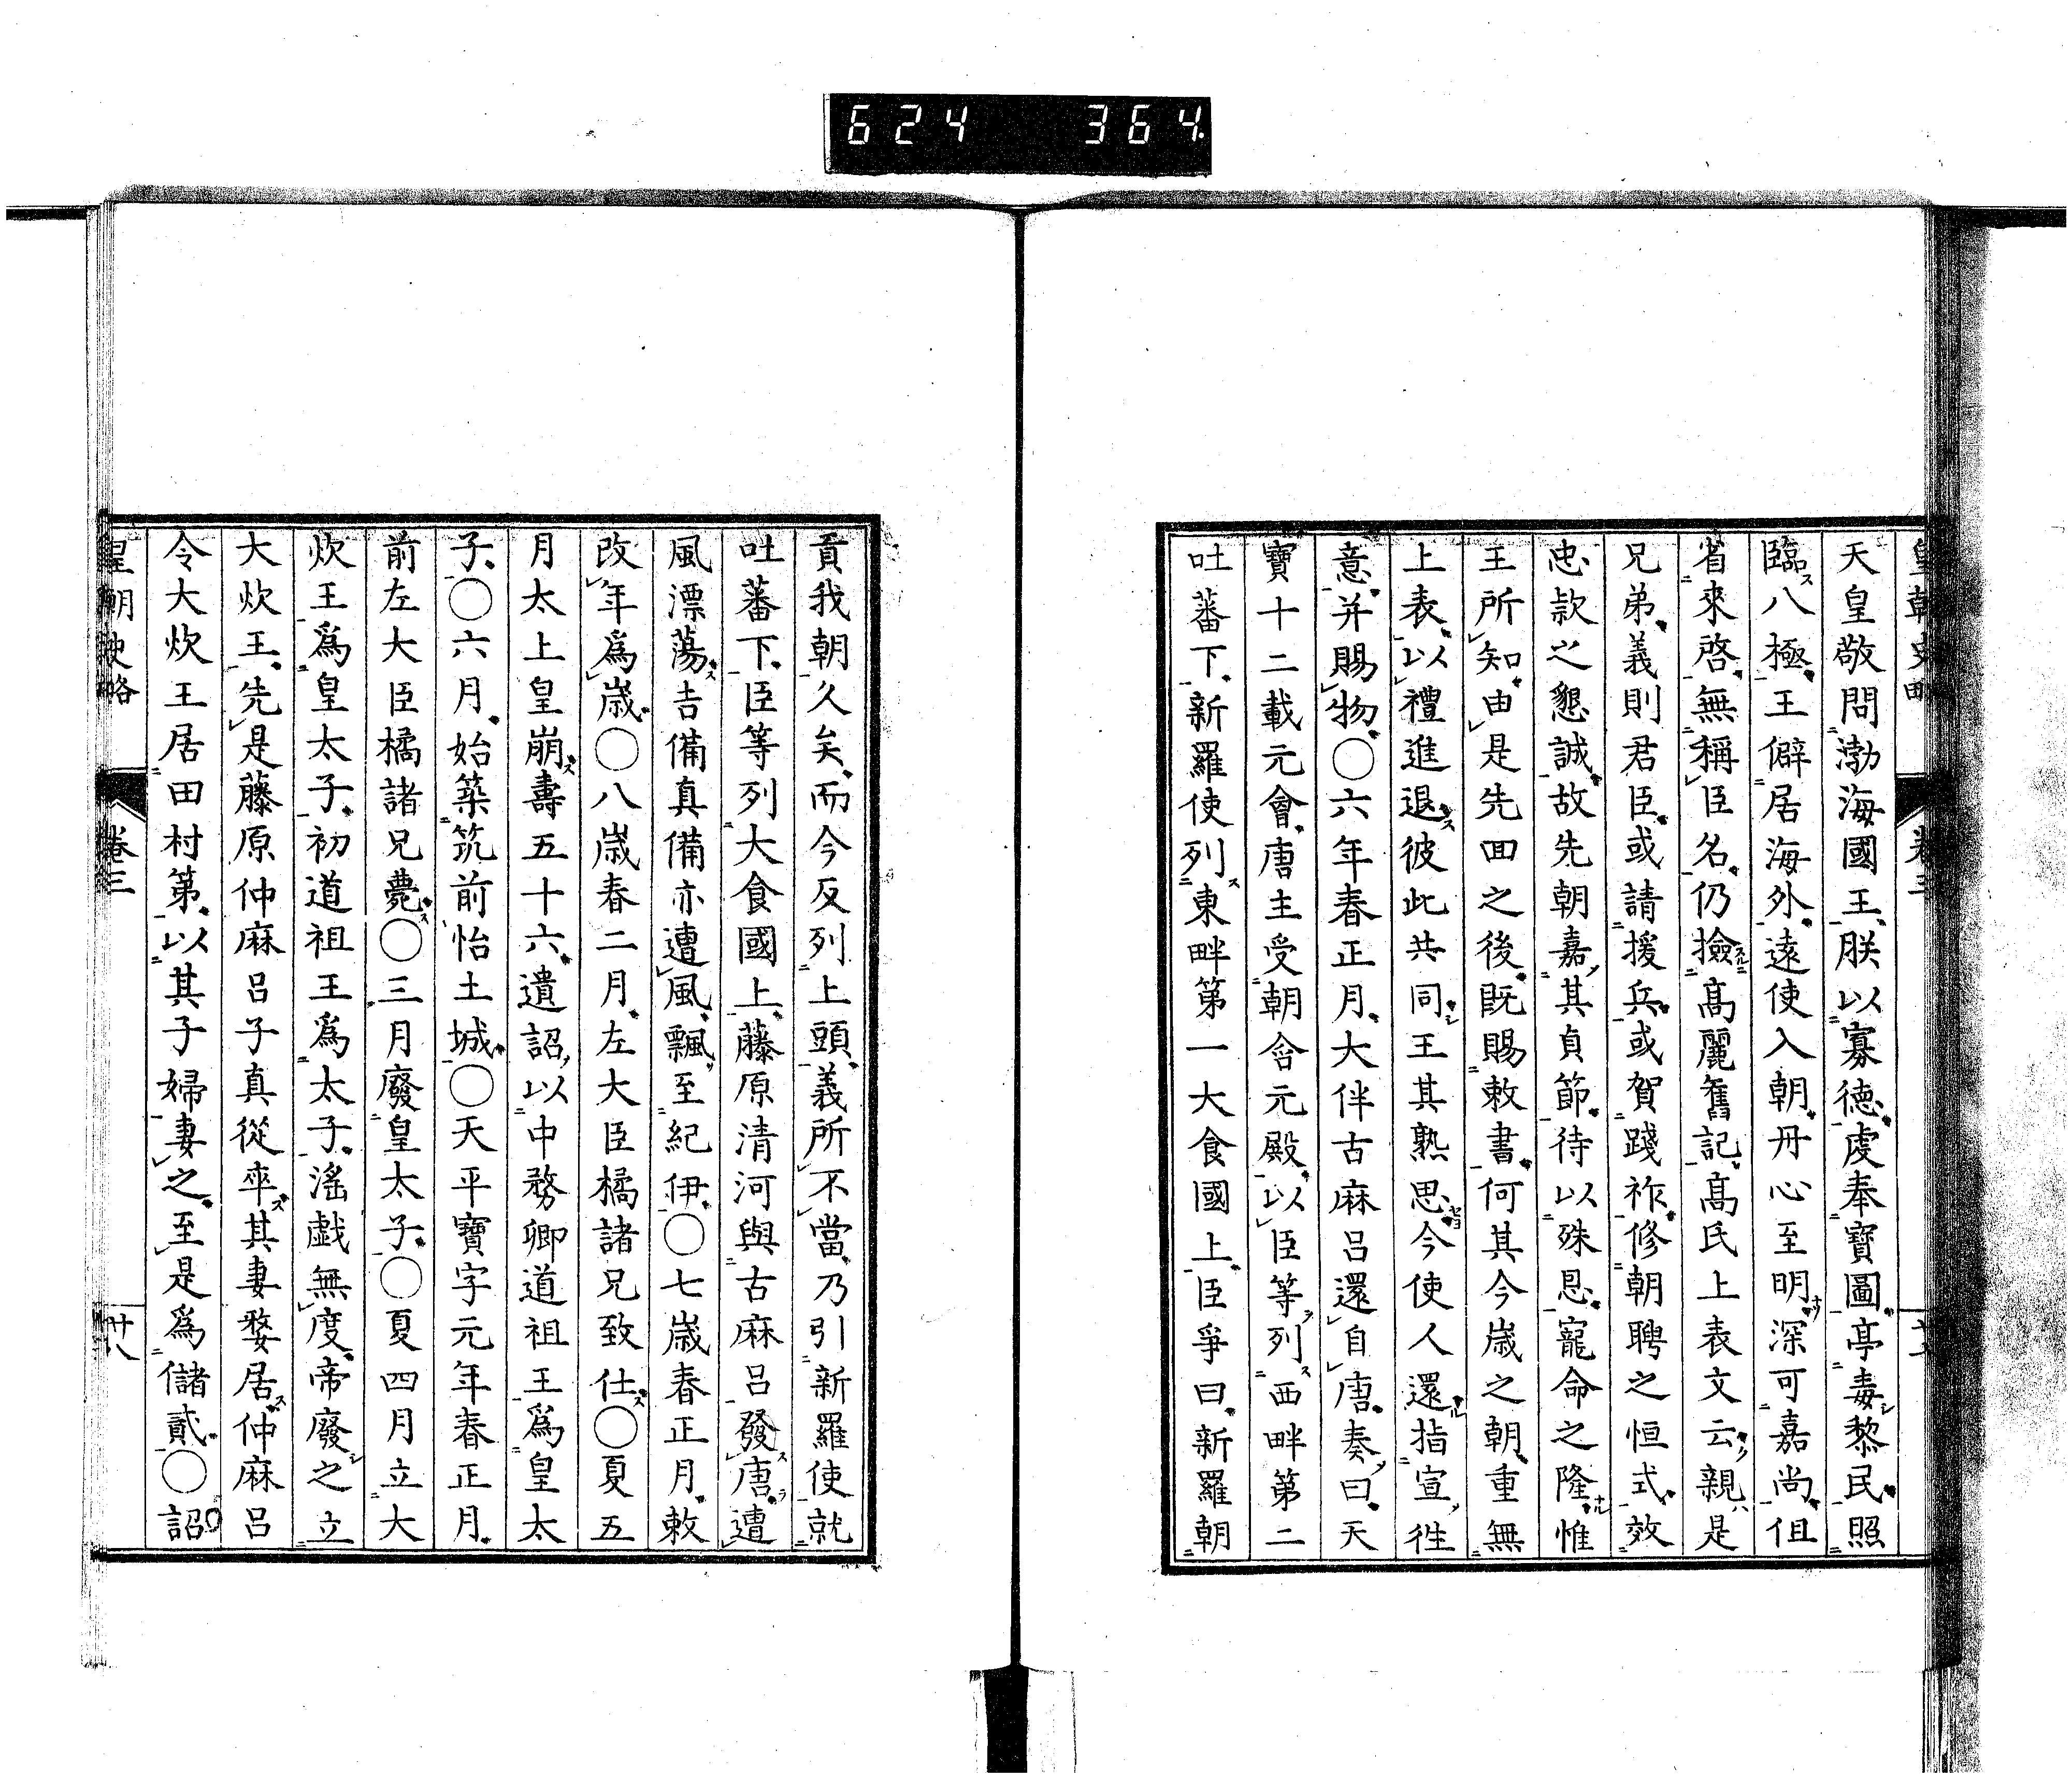 624 364
皇朝史略 卷三
天皇敬問渤海國王、朕以寡德、虔奉寶圖、亭毒黎民、照
臨八極、王僻居海外、遠使入朝、丹心至明、深可嘉尚、但
省來啓、無稱臣名、仍撿髙麗舊記、髙氏上表文云、親是
兄弟、義則君臣、或請援兵、或賀踐祚、修朝聘之恒式、效
忠款之懇誠、故先朝嘉其貞節、待以殊恩、寵命之隆、惟
王所知、由是先回之後、既賜敕書、何其今歳之朝、重無
上表、以禮進退、彼此共同、王其熟思、今使人還、指宣徃
意、并賜物、〇六年春正月、大伴古麻呂還自唐、奏曰、天
寶十二載元會、唐主受朝含元殿、以臣等列西畔第二
吐蕃下、新羅使列東畔第一大食國上、臣爭曰、新羅朝
貢我朝久矣、而今反列上頭、義所不當、乃引新羅使就
吐蕃下、臣等列大食國上、藤原清河與古麻呂發唐、遭
風漂蕩、吉備真備亦遭風、飄至紀伊、〇七歳春正月、敕
改年爲歳、〇八歳春二月、左大臣橘諸兄致仕、〇夏五
月太上皇崩、壽五十六、遺詔、以中務卿道祖王爲皇太
子、〇六月、始築筑前怡土城、〇天平寶字元年春正月、
前左大臣橘諸兄薨、〇三月廢皇太子、〇夏四月立大
炊王爲皇太子、初道祖王爲太子、滛戯無度、帝廢之立
大炊王、先是藤原仲麻呂子真從卒、其妻嫠居、仲麻呂
令大炊王居田村第、以其子婦妻之、至是爲儲貳、〇詔
皇朝史略 卷三 廿八